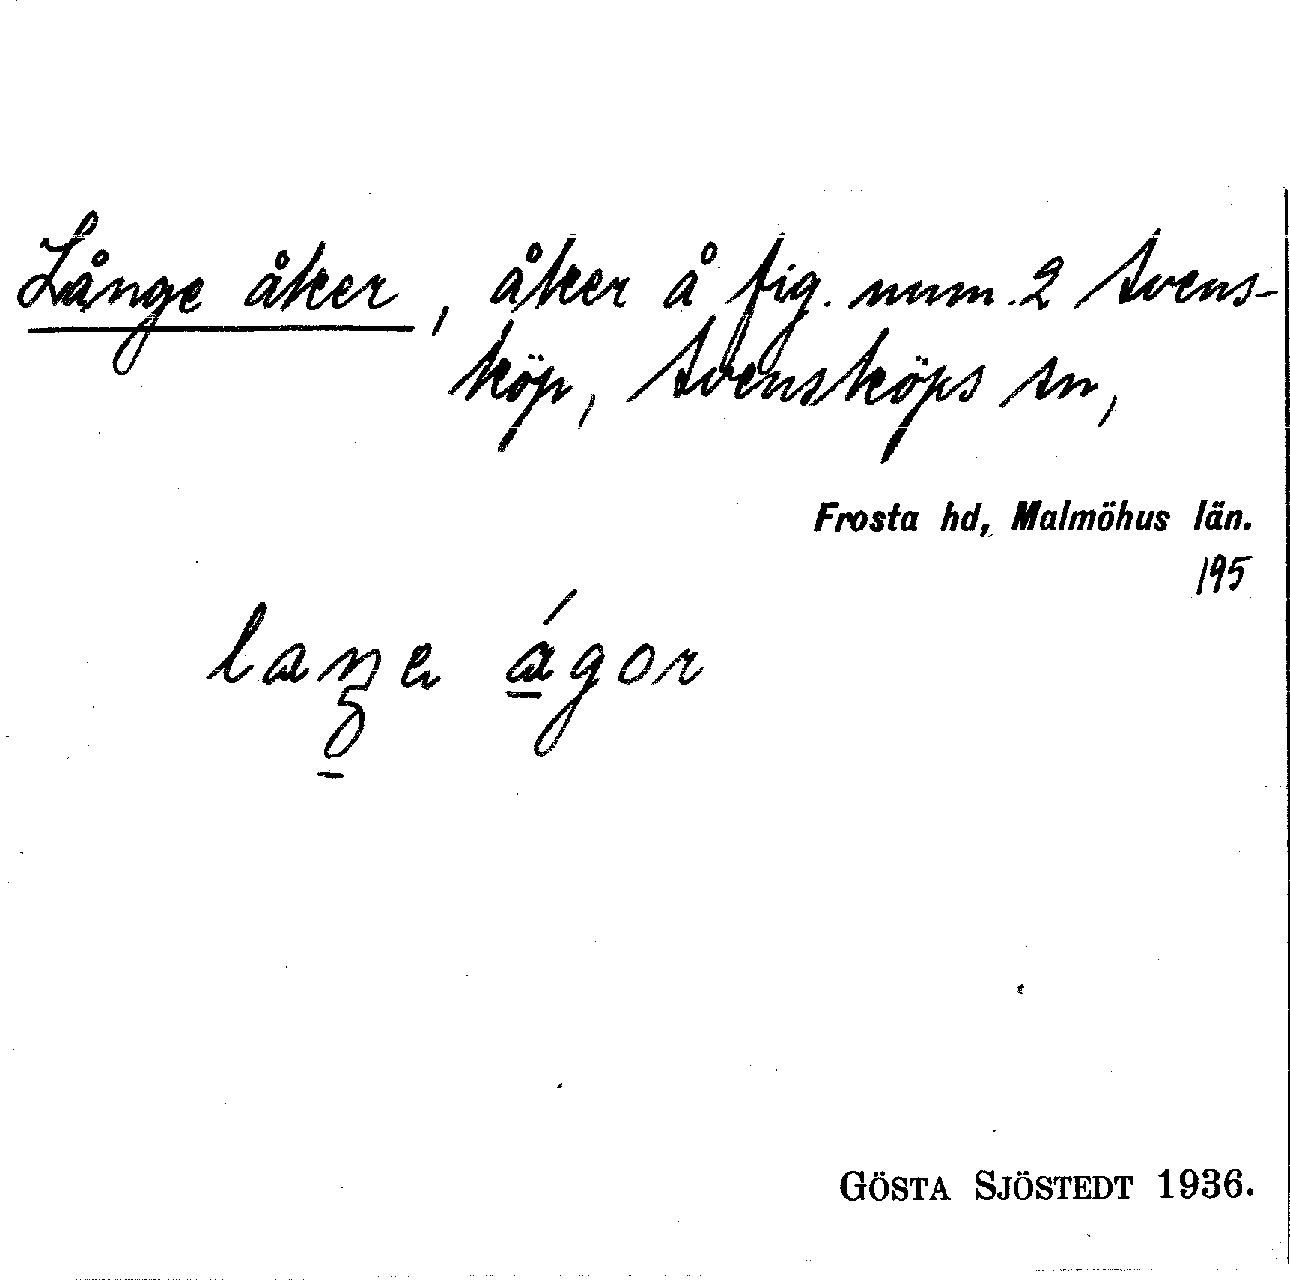 Långe åker, åker å fig. num. 2 Svens-
köp, Svensköps sn,
Frosta hd, Malmöhus län.
195
GÖSTA SJÖSTEDT 1936.